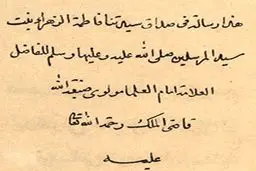 هذا رسالة في صداق سيدتنا فاطمة الزهراء بنت
سيد المرسلين صلى الله عليه وعليها وسلم للفاضل
العلامة امام العلما مولوي صبغة الله
قاضي الملك رحمة الله تعا
عليه